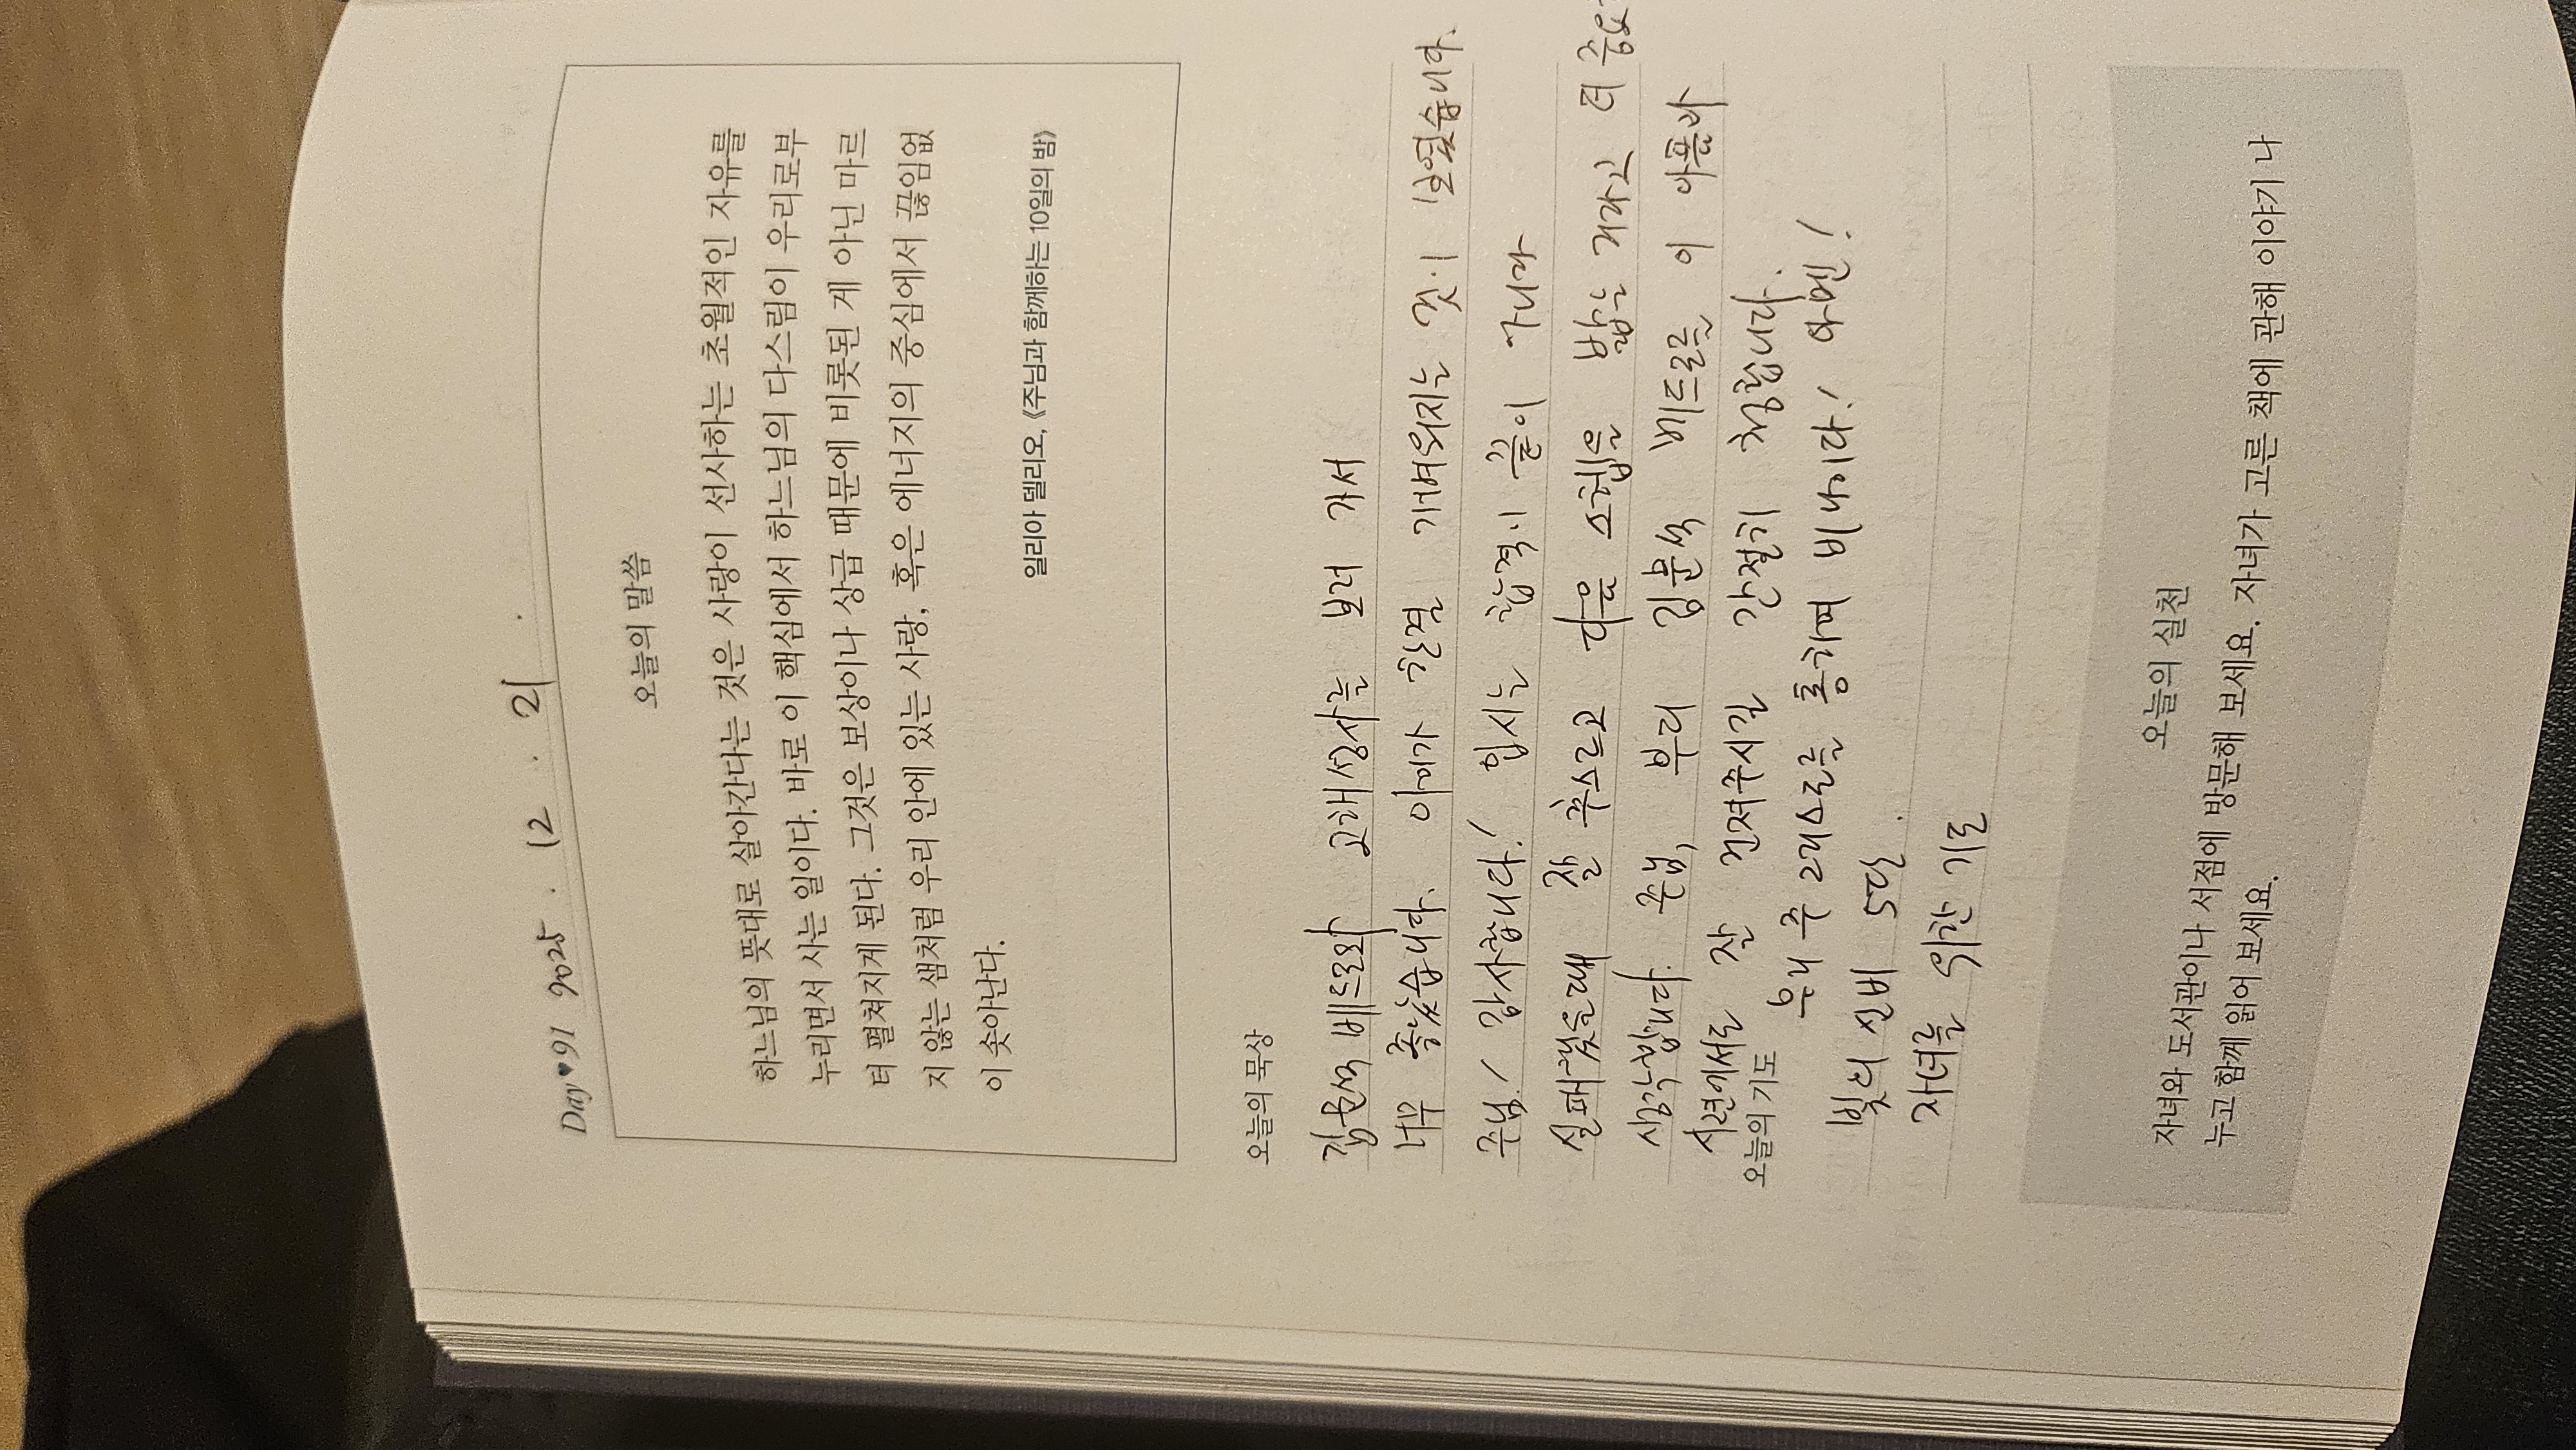 Day♥91 2025. 12. 21.
오늘의 말씀
하느님의 뜻대로 살아간다는 것은 사랑이 선사하는 초월적인 자유를
누리면서 사는 일이다. 바로 이 핵심에서 하느님의 다스림이 우리로부
터 펼쳐지게 된다. 그것은 보상이나 상급 때문에 비롯된 게 아닌 마르
지 않는 샘처럼 우리 안에 있는 사랑, 혹은 에너지의 중심에서 끊임없
이 솟아난다.
일리아 델리오, 《주님과 함께하는 10일의 밤》
오늘의 묵상
베드로와 고해성사를 보러 가서
너무 좋았습니다. 아이가 한결 가벼워지는 것이 보였습니다.
주님! 감사합니다! 입시는 합격이 끝이 아니라
실패했을때 잘 추스르고 다음 스텝을 밟는 게 더 중요
생각합니다. 주님, 우리 베드로를 이 아픔과
시련에서도 잘 건져주시길 간절히 청합니다.
오늘의 기도
우리 주 그리스도를 통하여 비나이다! 아멘!
빛의 신비 5단.
자녀를 위한 기도
오늘의 실천
자녀와 도서관이나 서점에 방문해 보세요. 자녀가 고른 책에 관해 이야기 나
누고 함께 읽어 보세요.